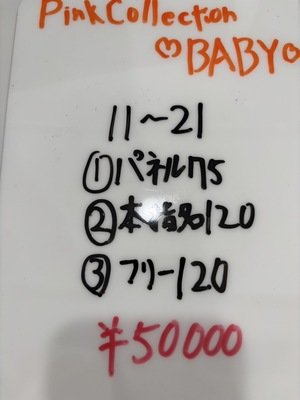 Pink Collection
♡BABY♡
11～21
①パネル75
②本指名120
③フリー120
¥50000